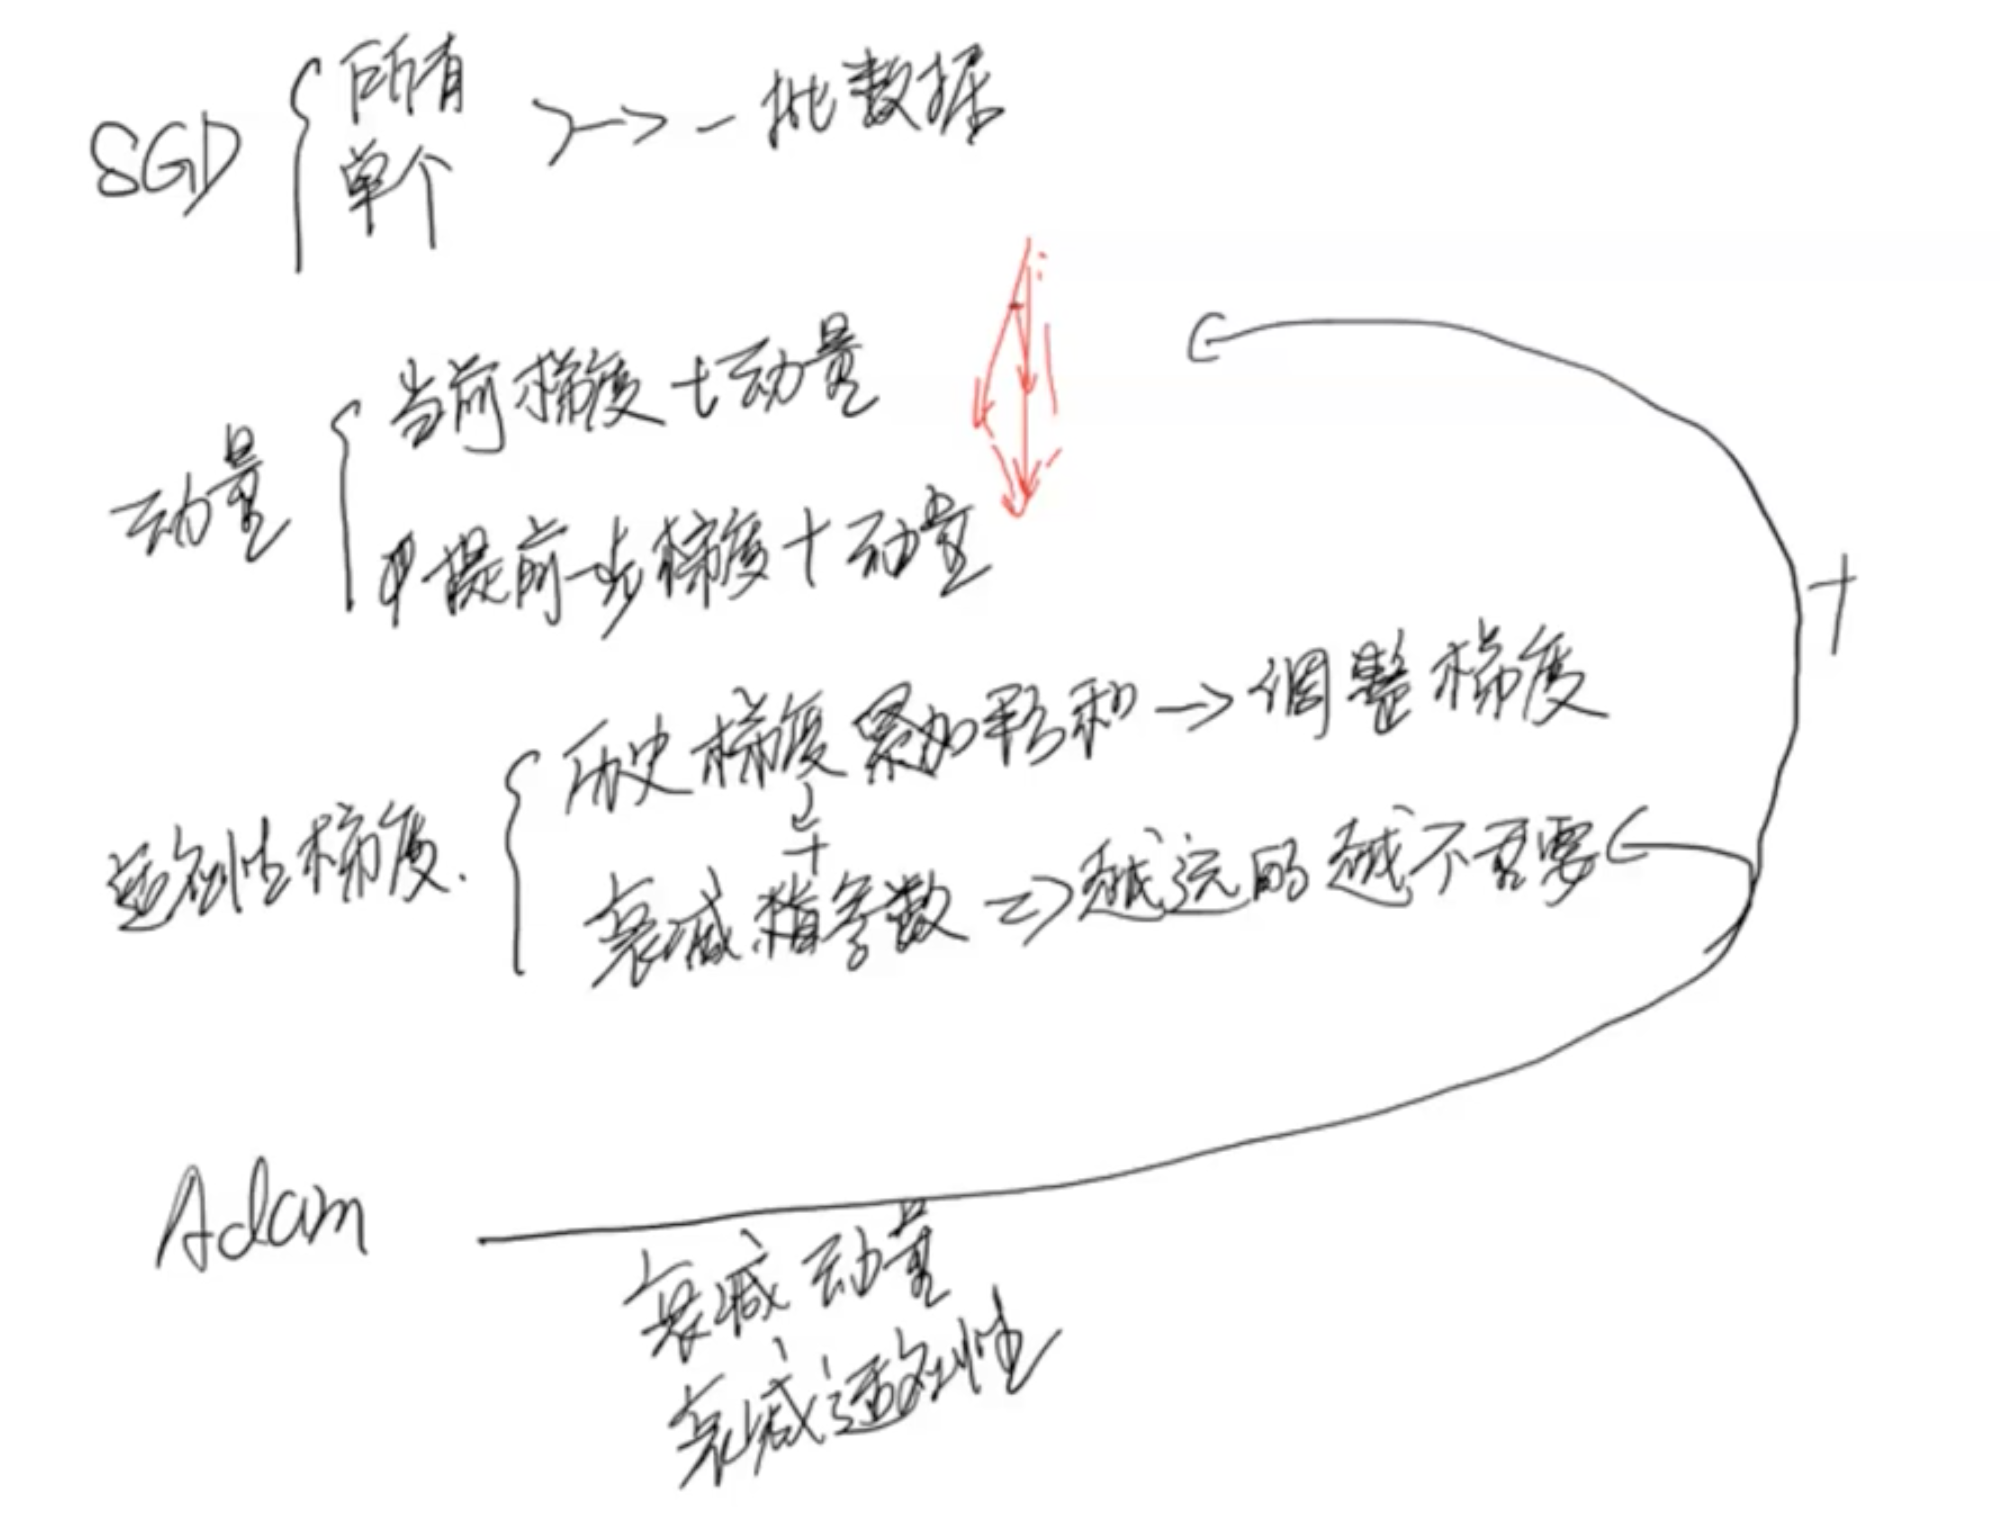 SGD { 所有 单个 → 一批数据
动量 { 当前梯度 + 动量
提前一步梯度 + 动量
适应性梯度. { 历史梯度累加平方和 → 调整梯度
+
衰减指数 => 越远的越不重要
+
Adam
衰减动量
衰减适应性